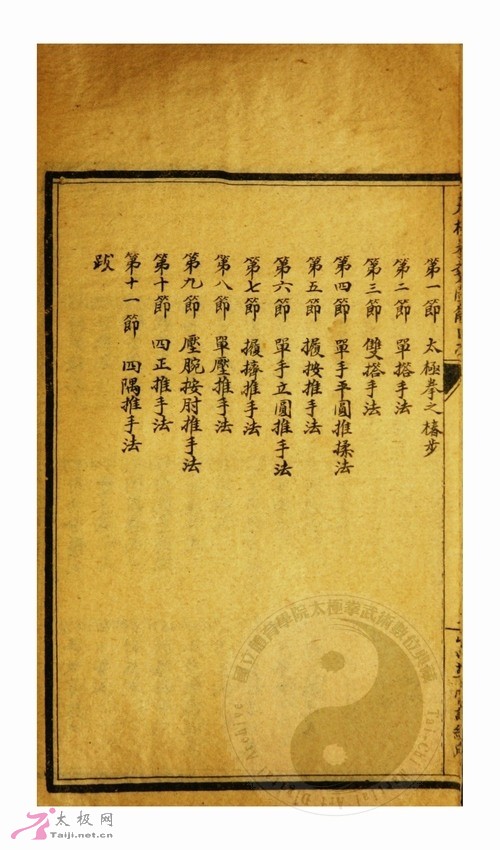 第一節 太極拳之樁步
第二節 單搭手法
第三節 雙搭手法
第四節 單手平圓推揉法
第五節 履按推手法
第六節 單手立圓推手法
第七節 履擠推手法
第八節 單壓推手法
第九節 壓腕按肘推手法
第十節 四正推手法
第十一節 四隅推手法
跋
國立體育學院太極拳武術數位典藏
Tai-Chi Martial Art Digital Archive
太极网
Taiji.net.cn